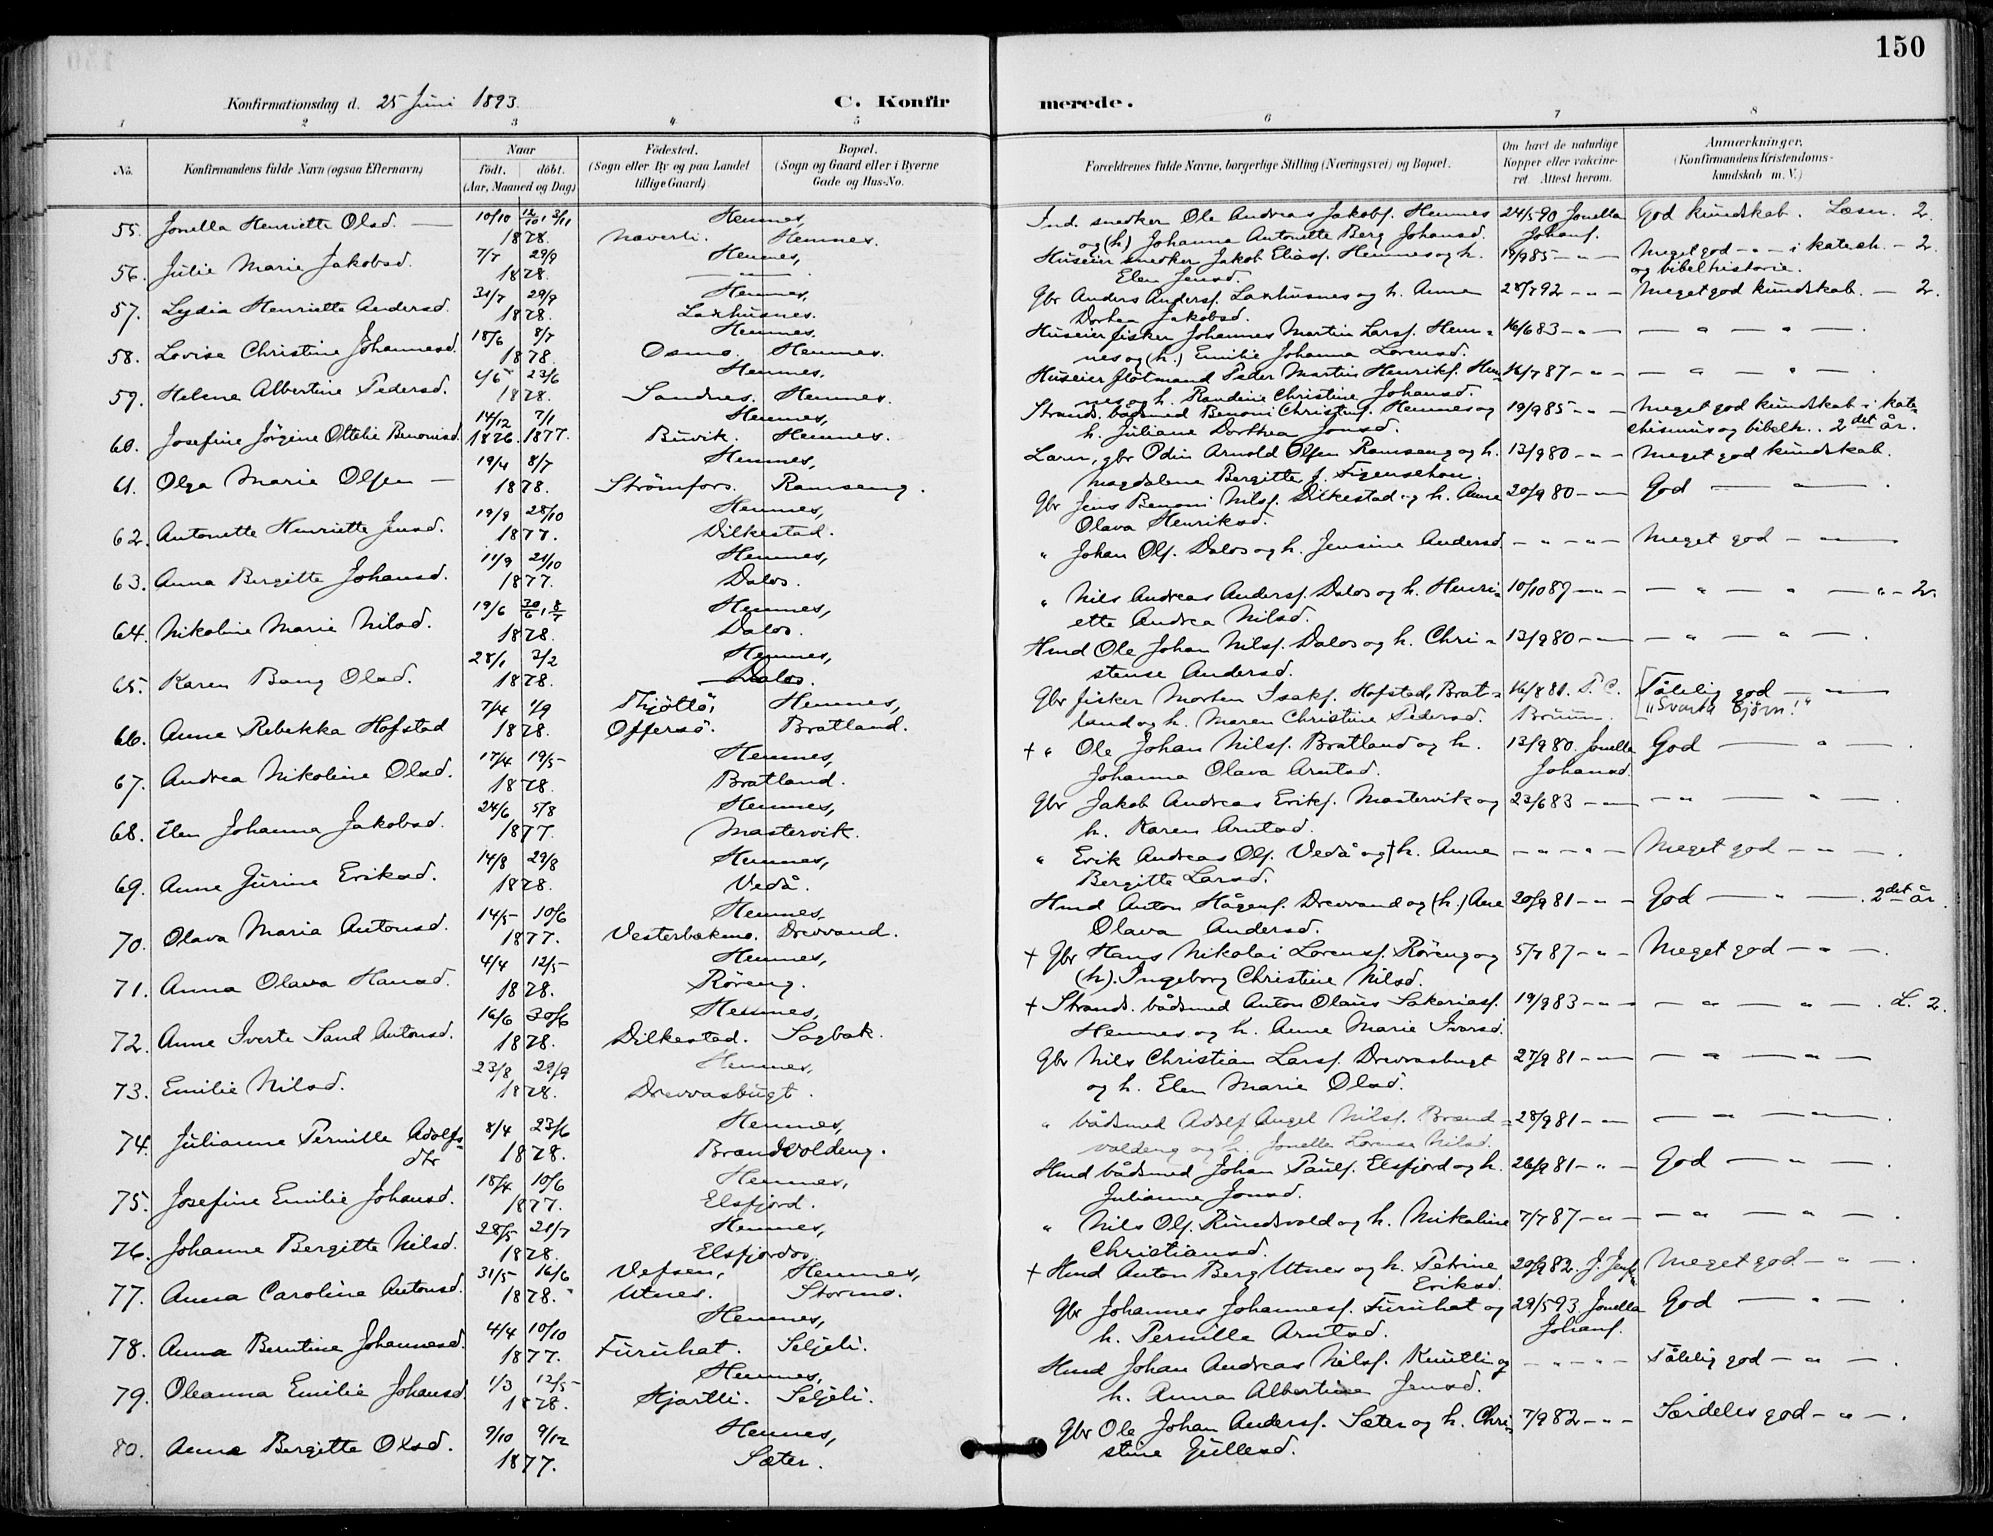 150
Konfirmationsdag d. 25 Juni 1893.
C. Konfirmerede.
1 2 3 4 5 6 7 8
No.
Konfirmandens fulde Navn (ogsaa Efternavn)
Naar
födt. döbt.
(Aar, Maaned og Dag)
Födested.
(Sogn eller By og paa Landet
tillige Gaard)
Bopæl.
(Sogn og Gaard eller i Byerne
Gade og Hus-No.
Forældrenes fulde Navne, borgerlige Stilling (Næringsvei) og Bopæl.
Om havt de naturlige
Kopper eller vakcine-
ret. Attest herom.
Anmærkninger,
(Konfirmandens Kristendoms-
kundskab m. V.)
55. Jonella Henriette Olsd. — 10/10 12/10, 3/11 Hemnes, Ind. snedker Ole Andreas Jakobs. Hemnes 24/5 90 Jonella God kundskab. Læsn. 2.
1878. Naverli. Hemnes. og (h) Johanna Antonette Berg Johansd. Johans.
56. Julie Marie Jakobsd. 7/7 29/9 Hemnes, Huseier snedker Jakob Elias. Hemnes og h. 19/9 85 — " — Meget god — " — i katech. — 2.
1878. — " — Elen Jensd. og bibelhistorie.
57. Lydia Henriette Andersd. 31/7 29/9 Hemnes, Gbr Anders Anders. Laxhusnes og h. Anne 28/7 92 — " — Meget god kundskab. — 2.
1878. Laxhusnes. Dorhea Jakobsd.
58. Lovise Christine Johannesd. 18/6 8/7 Hemnes. Huseier fisker Johannes Martin Lars. Hem- 16/6 83 — " — — " — " — .
1878. Osmo. Hemnes. nes og (h.) Emilie Johanna Lorensd.
59. Helene Albertine Pedersd. 4/5 23/6 Hemnes, Huseier flötmand Peder Martin Henriks. Hem- 16/7 87 — " — — " — " — .
1878. Sandnes. Hemnes. nes og h. Randine Christine Johansd.
60. Josefine Jörgine Ottelie Benonisd. 14/12 7/1 Hemnes, Strands. bådsmed Benoni Christins. Hemnes og 19/9 85 — " — Meget god kundskab i kate-
1876. 1877. Buvik. Hemnes. h. Juliane Dorthea Jonsd. chismus og bibelh. . 2det år.
61. Olga Marie Olsen — 19/4 8/7 Hemnes, Lærer, gbr Odin Arnold Olsen Ramseng og h. 13/9 80 — " — Meget god kundskab.
1878. Strömfors. Ramseng. Magdalene Bergitte f.
62. Antonette Henriette Jensd. 19/9 28/10 Hemnes, Gbr Jens Benoni Nils. Dilkestad og h. Anne 20/9 80 — " — God — " — .
1877. Dilkestad. Olava Henriksd.
63. Anna Bergitte Johansd. 11/9 21/10 Hemnes, " Johan Ols. Dalos og h. Jensine Andersd. — " — " — Meget god — " —
1877. Dalos.
64. Nikoline Marie Nilsd. 19/6 30/6, 8/7 Hemnes, " Nils Andreas Anders. Dalos og h. Henri- 10/10 87 — " — — " — " — " — 2.
1878. Dalos. ette Andrea Nilsd.
65. Karen Bang Olsd. 28/1 3/2 Hemnes, Hmd Ole Johan Nils. Dalos og h. Chri- 13/9 80 — " — — " — " — .
1878. Dalos. stense Andersd.
66. Anne Rebekka Hofstad 7/4 1/9 Thjöttö, Hemnes, Gbr fisker Morten Isaks. Hofstad, Brat- 16/8 81. P. C. Tålelig god — " —
1878. Offersö. Bratland. land og h. Maren Christine Pedersd. Bruun. "Svarta Björn!"
67. Andrea Nikoline Olsd. 17/4 19/5 Hemnes, + " Ole Johan Nils. Bratland og h. 13/9 80. Jonella God — " — .
1878. Bratland. Johanna Olava Arntsd. Johansd.
68. Elen Johanna Jakobsd. 24/6 5/8 Hemnes, Gbr Jakob Andreas Eriks. Mastervik og 23/6 83 — " — — " — " — .
1877. Mastervik. h. Karen Arntsd.
69. Anne Jurine Eriksd. 14/8 29/8 Hemnes, " Erik Andreas Ols. Vedå og † h. Anne — " — " — Meget god — " — .
1878. Vedå. Bergitte Larsd.
70. Olava Maria Antonsd. 14/5 10/6 Hemnes, Hmd Anton Hågens. Drevvand og (h.) Ane 20/9 81 — " — God — " — . 2det år.
1877. Vesterbækmo. Drevvand. Olava Andersd.
71. Anna Olava Hansd. 4/4 12/5 Hemnes, + Gbr Hans Nikolai Lorens. Röreng og 5/7 87 — " — Meget god — " — .
1878. Röreng. (h). Ingeborg Christine Nilsd.
72. Anne Iverte Sand Antonsd. 16/6 30/6 Hemnes, + Strands. bådsmed Anton Olaus Sakarias. 19/9 83 — " — — " — " — . L. 2.
1878. Dilkestad. Sagbak. Hemnes og h. Anne Marie Ivarsd.
73. Emilie Nilsd. 23/8 29/9 Hemnes, Gbr Nils Christian Lars. Drevvasbugt 27/9 81 — " — — " — " —
1878. Drevvasbugt. og h. Elen Marie Olsd.
74. Julianne Pernille Adolfs- 8/4 23/6 Hemnes, " bådsmed Adolf Angel Nils. Brand- 28/9 81 — " — — " — " — .
dtr 1878. Brandvoldeng. voldeng og h. Jonella Lorensa Nilsd.
75. Josefine Emilie Johansd. 18/4 10/6 Hemnes, Hmd bådsmed Johan Pauls. Elsfjord og h. 26/9 81 — " — God — " — .
1877. Elsfjord. Julianne Jonsd.
76. Johanne Bergitte Nilsd. 28/5 21/7 Hemnes, " Nils Ols. Rundvold og h. Nikoline 7/7 87 — " — — " — " — .
1878. Elsfjordos. Christiansd.
77. Anna Caroline Antonsd. 31/5 16/6 Vefsen, Hemnes, + Hmd Anton Berg Utnes og h. Petrine 20/9 82. J. Jens. Meget god — " — .
1878. Utnes. Stormo. Eriksd.
78. Anna Berntine Johannesd. 4/4 10/10 Hemnes, Gbr Johannes Johannes. Furuhat og 29/5 93. Jonella God — " — .
1877. Furuhat. Seljeli. h. Pernille Arntsd. Johans.
79. Oleanna Emilie Johansd. 1/3 12/5 Hemnes, Hmd Johan Andreas Nils. Knutli og — " — " — Tålelig god — " — .
1878. Hjartli. Seljeli. h. Anna Albertine Jensd.
80. Anne Bergitte Olsd. 9/10 9/12 Hemnes, Gbr Ole Johan Anders. Sæter og h. Chri- 7/9 82 — " — Særdeles god — " — .
1877. Sæter. stine Gullesd.